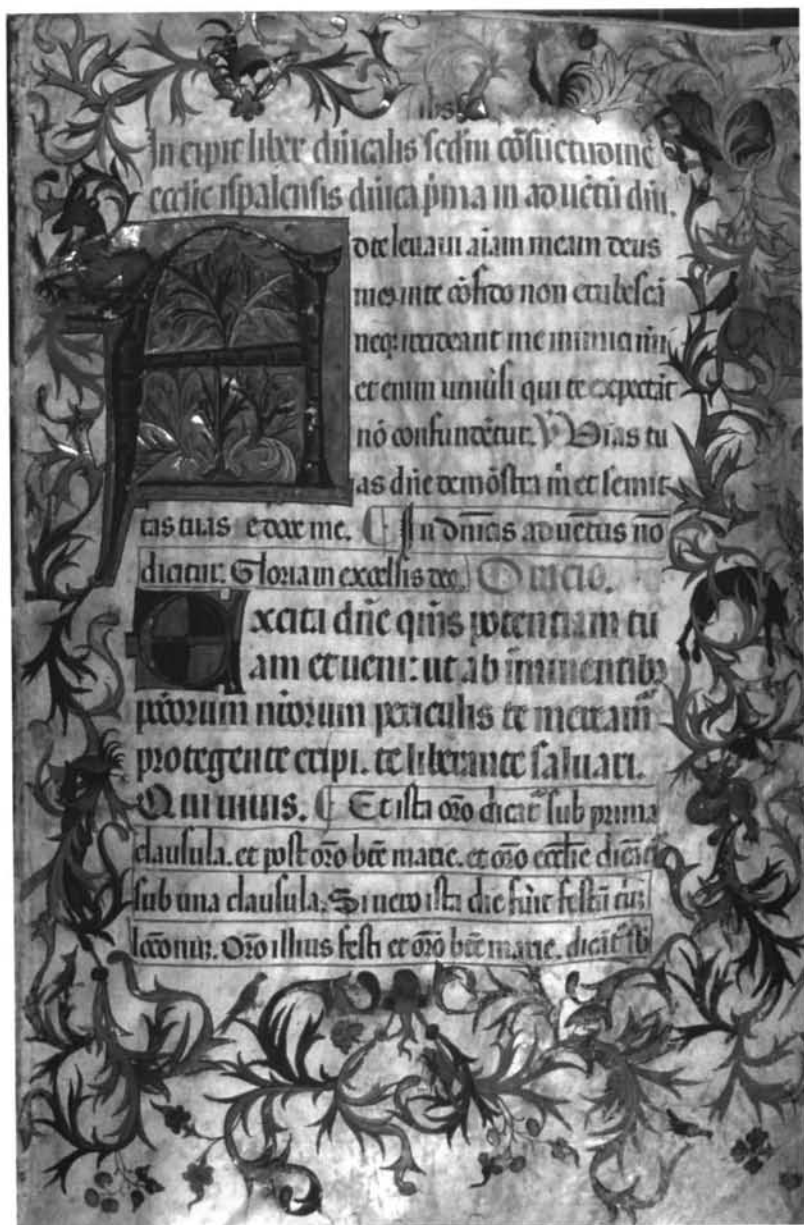 ihs
In cipit liber dn̄icalis scd̄m cōsuetudinē
ecclīe ispalensis dn̄ica p̄ma in aduētū dn̄i.
A dte leuaui aīam meam deus
meus inte cōfido non erubescā
neq; irrideant me inimici mī
et enim uniūsi qui te expectāt
nō confundētur. V̄ Uias tu
as dn̄e demōstra m̄ et semit
tas tuas edoce me. In dn̄icis aduētus nō
dicitur. Gloria in excelsis deo. Oracio.
Excita dn̄e qm̄s potentiam tu
am et ueni: ut ab īminentib;
pccōrum nrōrum periculis te meream̄
protegente eripi. te liberante saluari.
Qui uiuis. Et ista orō dicat̄ sub prima
clausula. et post orō btē marie. et orō ecclīe
sub una clausula. Si uero ista die
lcōnū. Orō illius festi et orō btē marie. dicāt̄